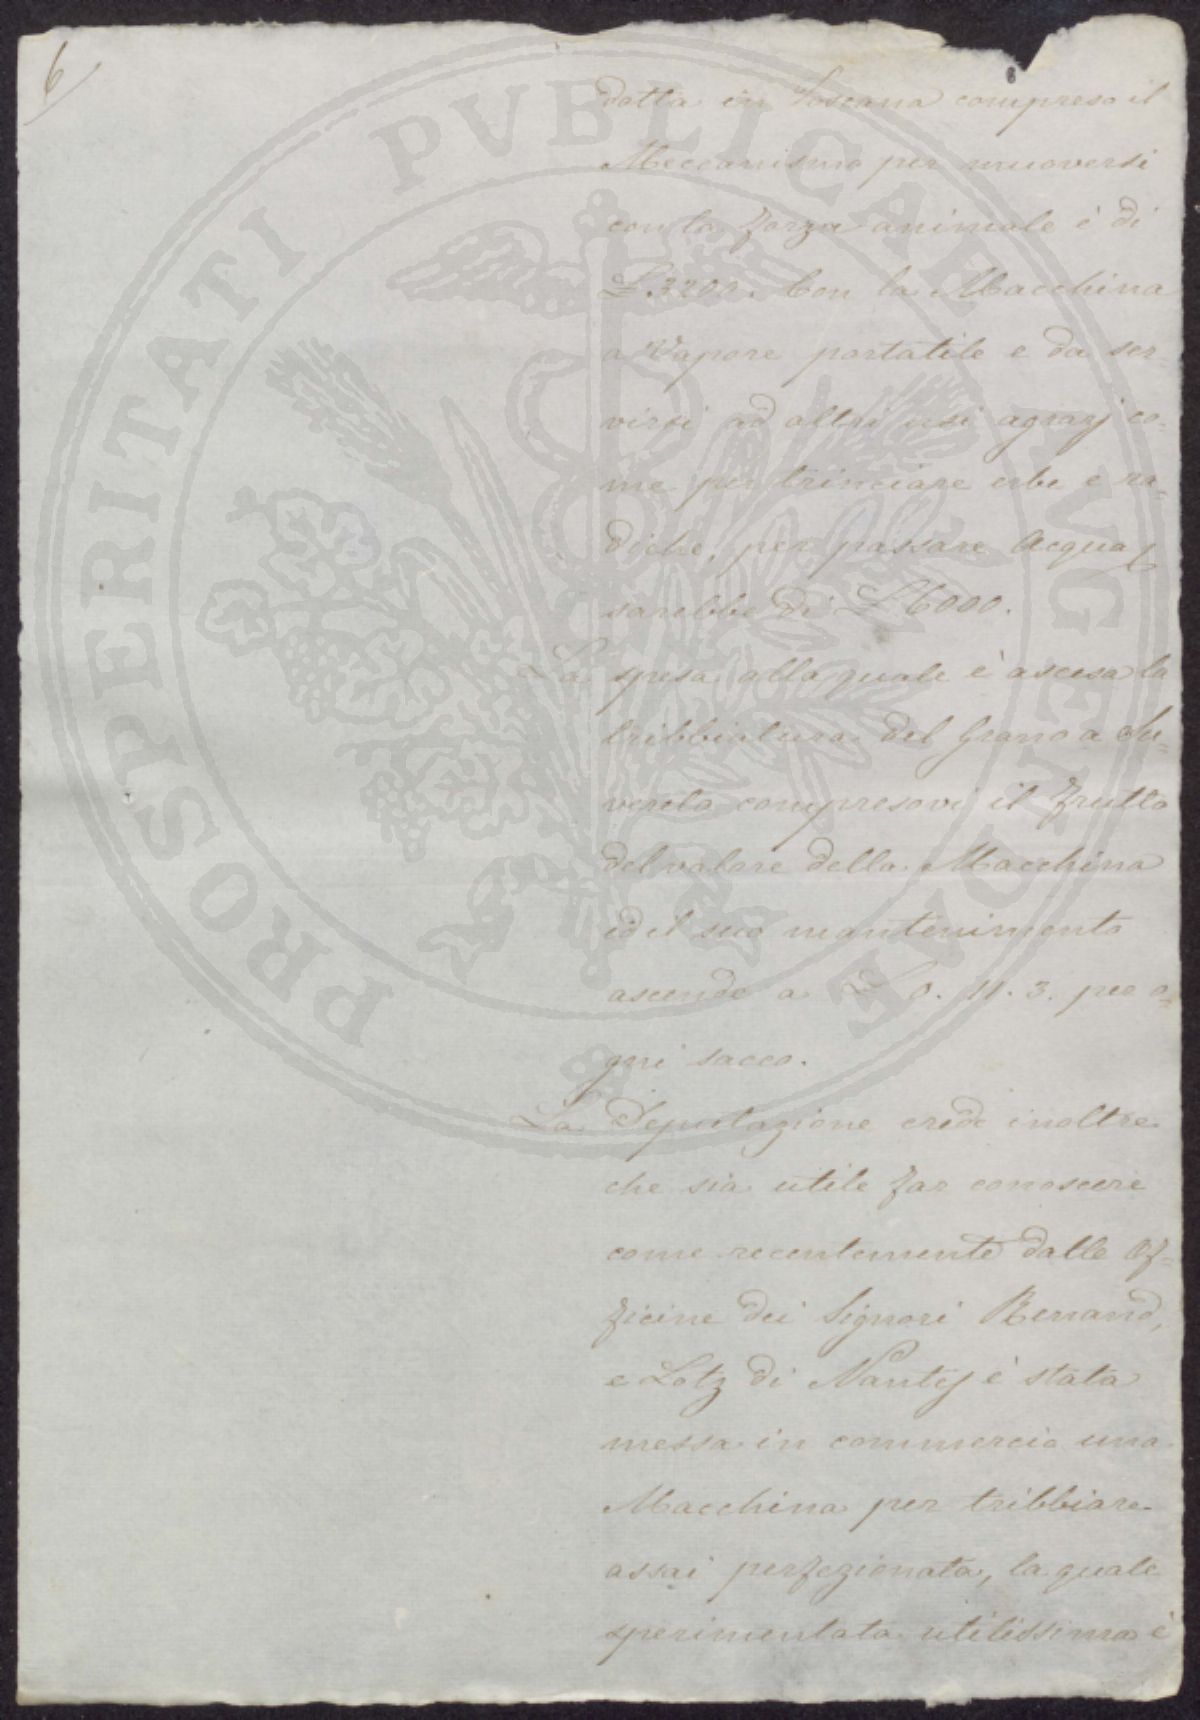 6
dotta in Toscana compreso il
Meccanismo per muoversi
con la forza animale è di
£ 3200. Con la Macchina
a Vapore portatile e da ser-
virsi ad altri usi agrarj co-
me per trinciare erbe e ra-
diche, per passare Acqua
sarebbe di £ 6000.
La spesa alla quale è ascesa la
tribbiatura del Grano a Su-
vereto compresovi il frutto
del valore della Macchina
ed il suo mantenimento
ascende a £ 0. 11. 3. per o-
gni sacco.
La Deputazione crede inoltre
che sia utile far conoscere
come recentemente dalle Of-
ficine dei Signori Renaud,
e Lotz di Nantes è stata
messa in commercio una
Macchina per tribbiare
assai perfezionata, la quale
sperimentata utilissima è
PROSPERITATI PVBLICAE AVGENDAE